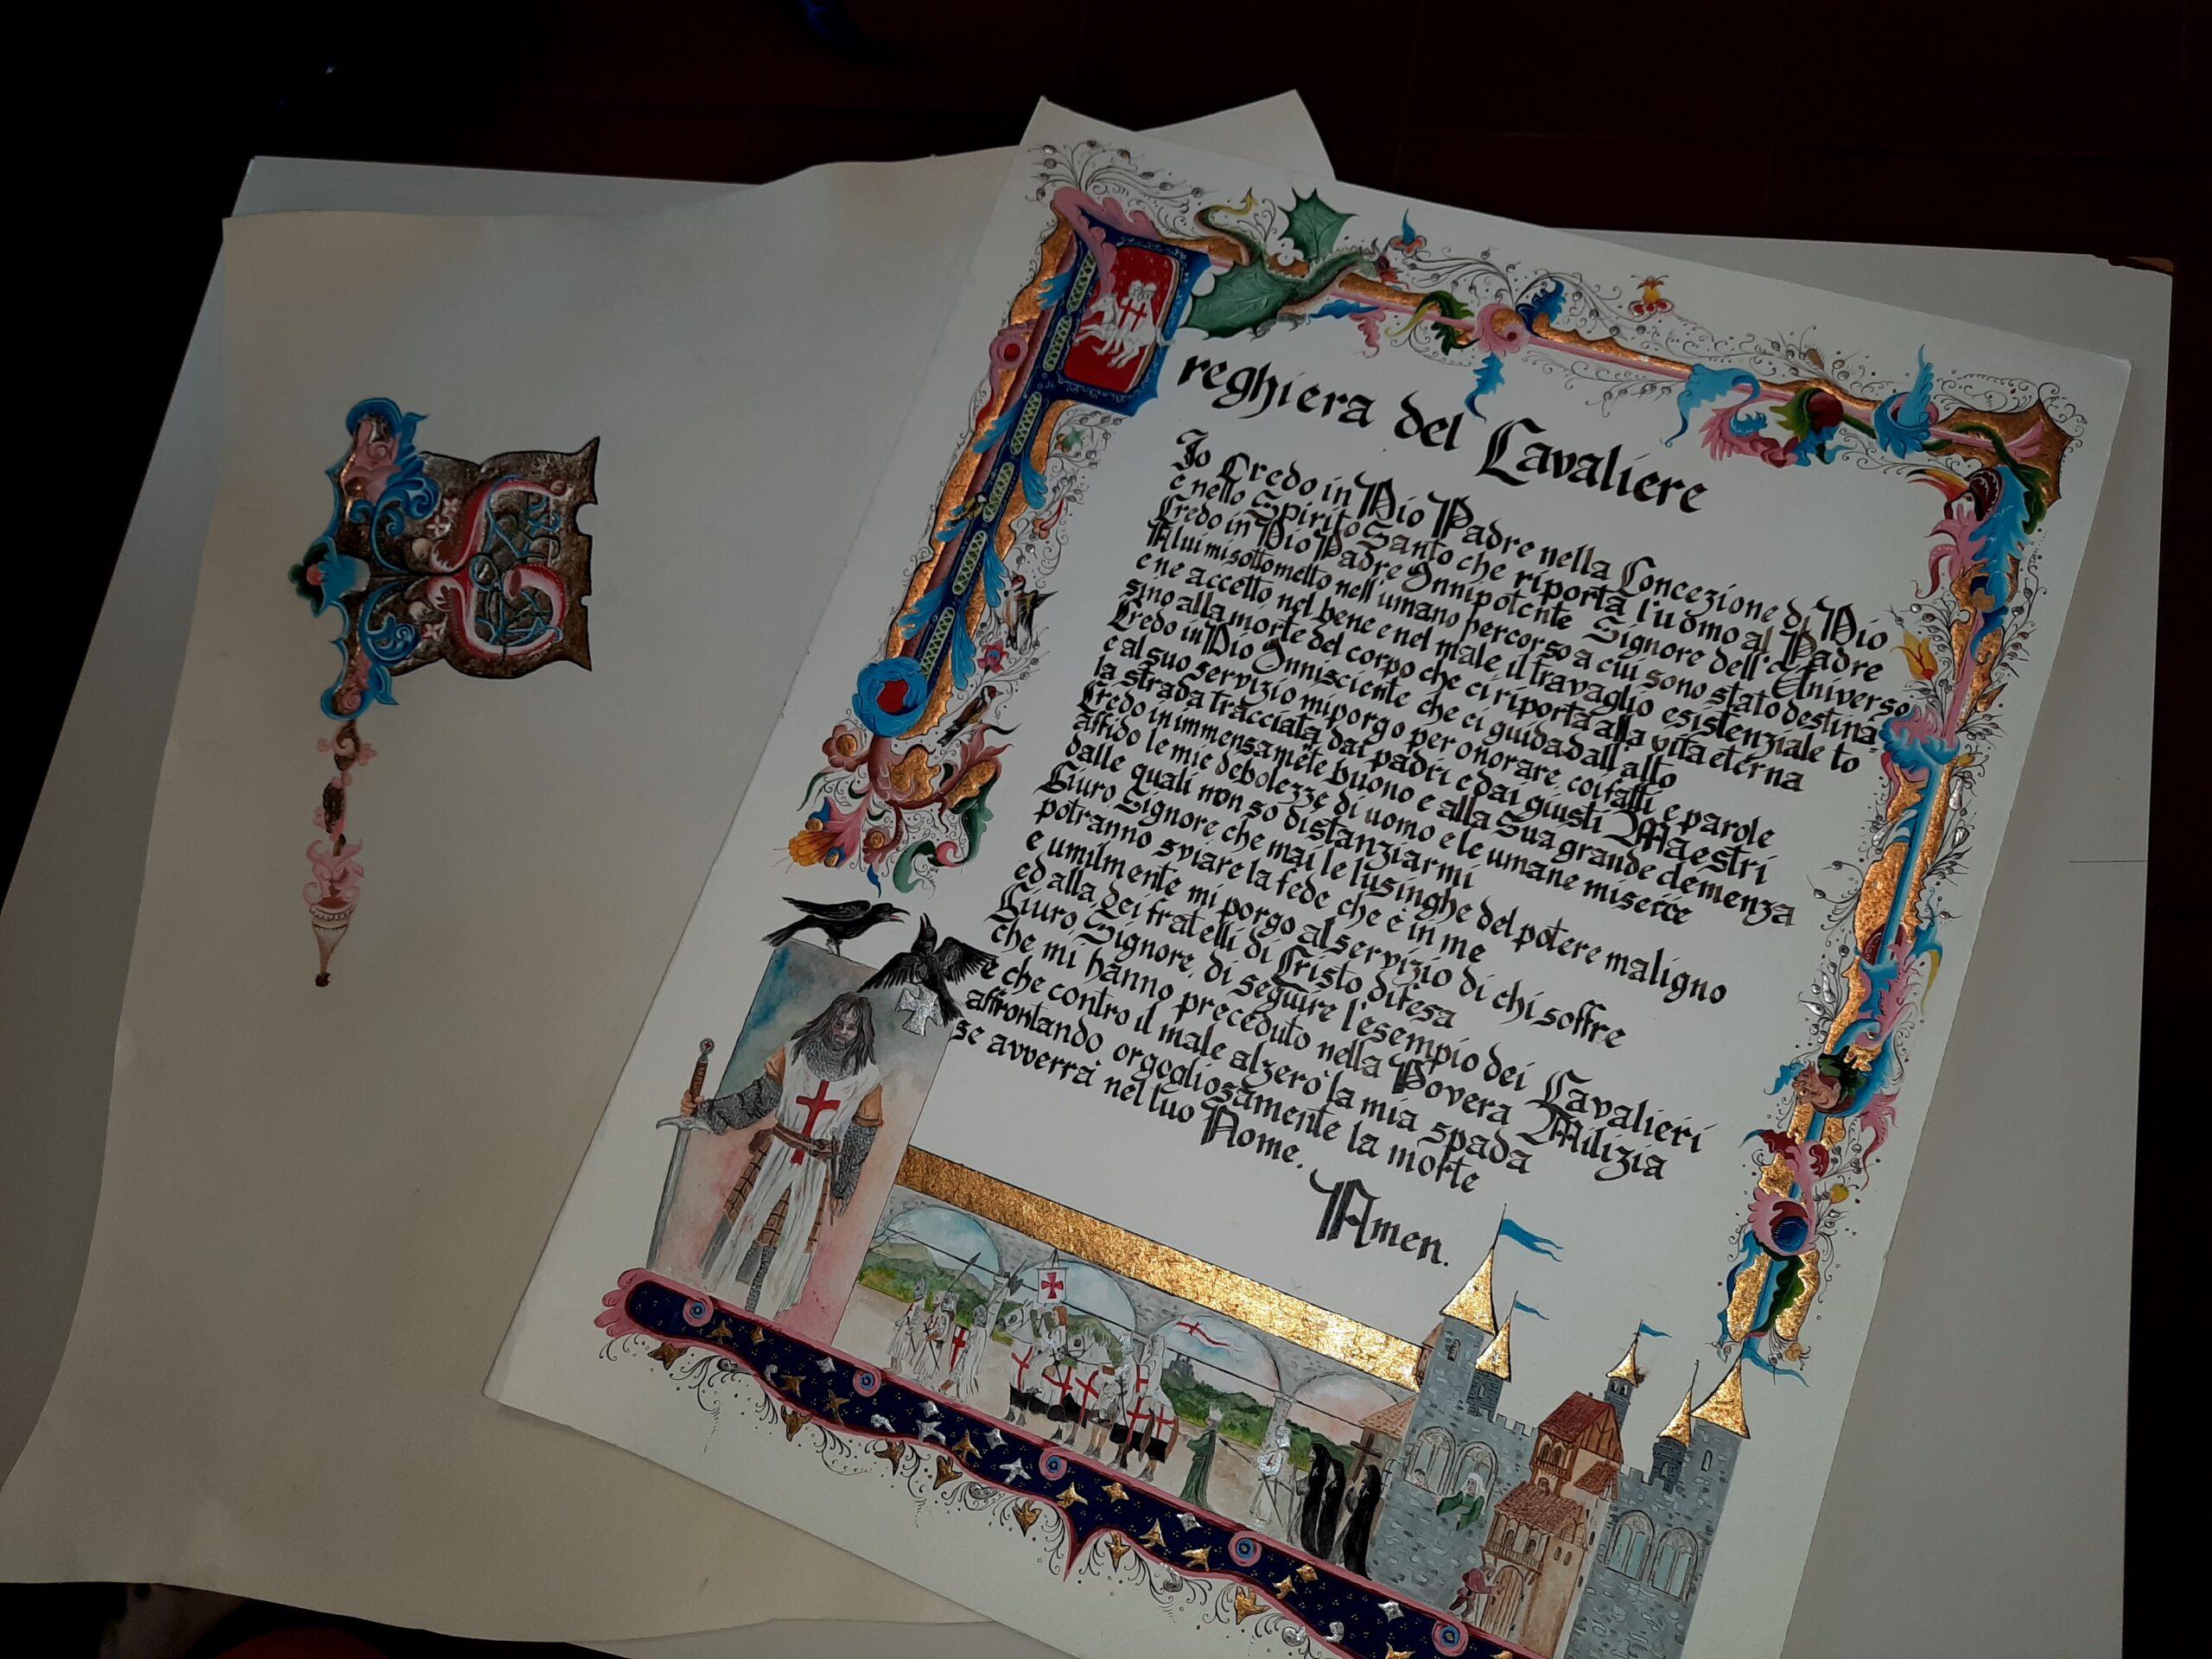 Preghiera del Cavaliere
Io Credo in Dio Padre nella Concezione di Dio
e nello Spirito Santo che riporta l'uomo al Padre
Credo in Dio Padre Onnipotente Signore dell'Universo
A lui mi sottometto nell'umano percorso a cui sono stato destina-
e ne accetto nel bene e nel male il travaglio esistenziale to
sino alla morte del corpo che ci riporta alla vita eterna
Credo in Dio Onnisciente che ci guida dall'alto
e al suo servizio mi porgo per onorare, coi fatti e parole
la strada tracciata dai padri e dai giusti Maestri
Credo in immensamete buono e alla Sua grande clemenza
affido le mie debolezze di uomo e le umane miserie
dalle quali non so distanziarmi
Giuro, Signore, che mai le lusinghe del potere maligno
potranno sviare la fede che è in me
e umilmente mi porgo al servizio di chi soffre
ed alla dei fratelli di Cristo difesa
Giuro, Signore, di seguire l'esempio dei Cavalieri
che mi hanno preceduto nella Povera Milizia
e che contro il male alzerò la mia spada
affrontando orgogliosamente la morte
se avverrà nel tuo Nome.
Amen.